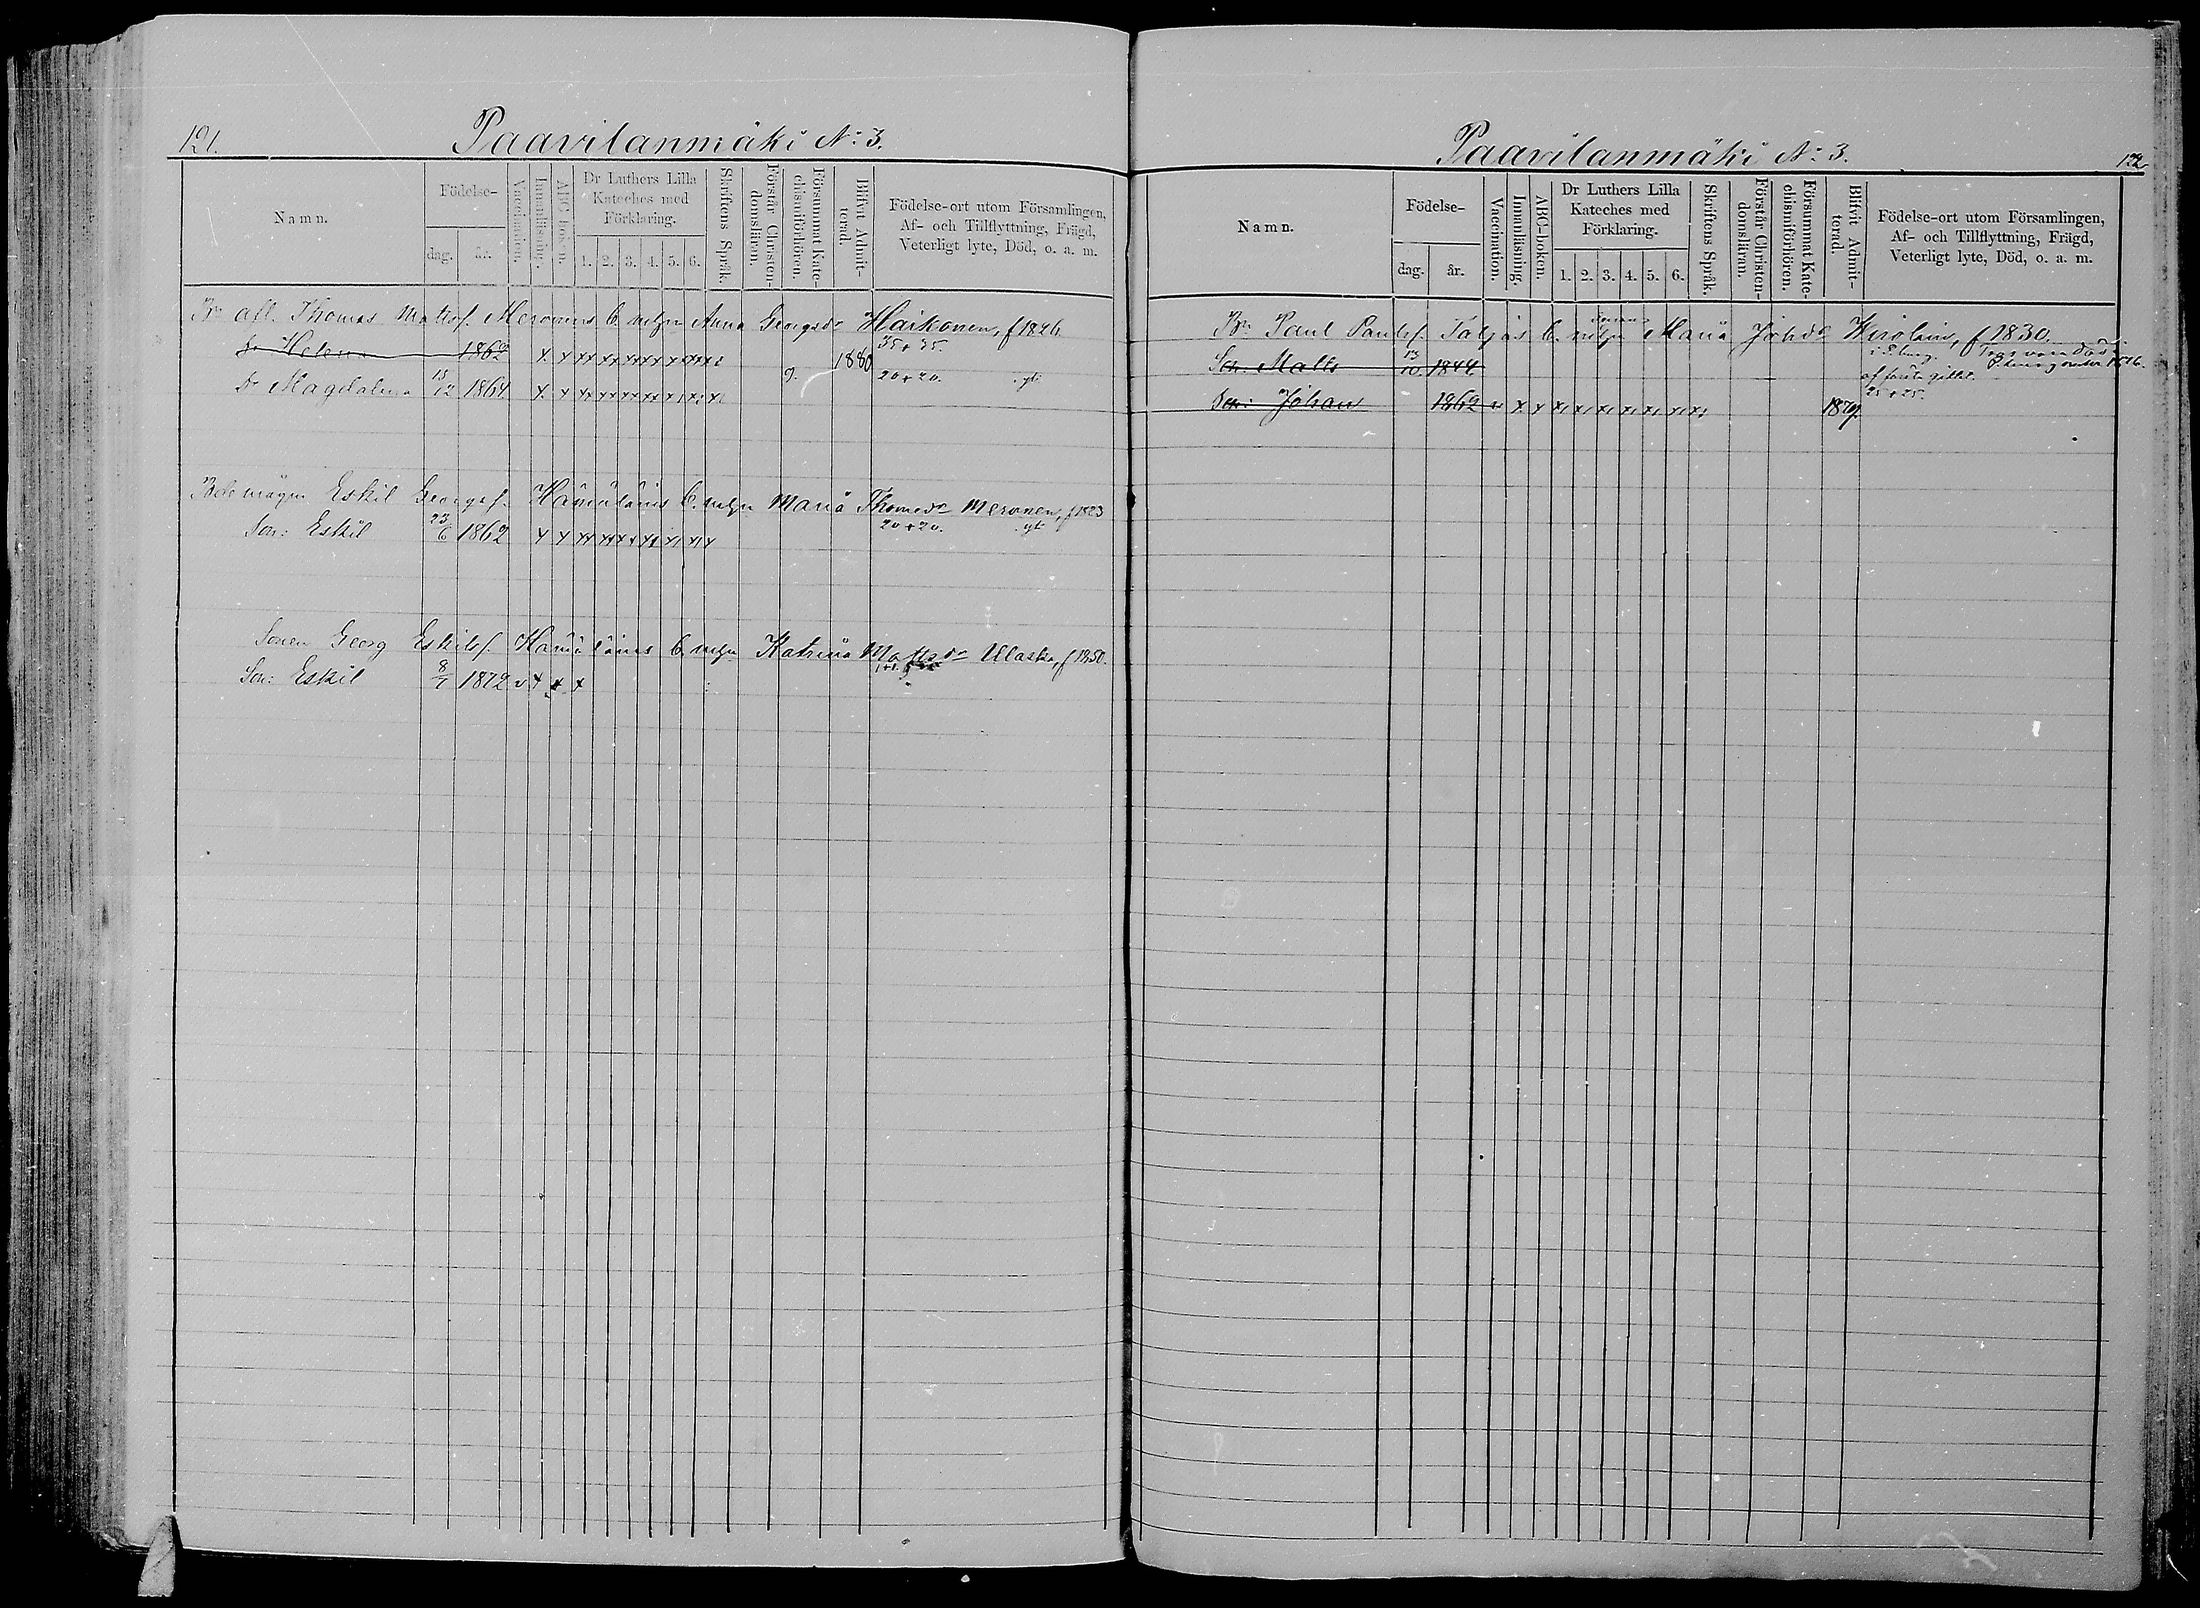 121.
Paavilanmäki No: 3.
Namn.
Födelse-
dag.
år.
Vaccination.
Innanläsning.
ABC-boken.
Dr Luthers Lilla Kateches med Förklaring.
1. 2. 3. 4. 5. 6.
Skriftens Språk.
Förstår Christendomsläran.
Försummat Katechismiförhören.
Blifvit Admitterad.
Födelse-ort utom Församlingen, Af- och Tillflyttning, Frägd, Veterligt lyte, Död, o. a. m.
Thomas Mattsf. Meronens Anna Georgsdr Haikonen, f 1826
35 + 35.
Dr Helena 1862 x x 1880
Dr Magdalena 18/12 1864 x x g. 20 + 20.
Eskil Georgsf. Hämäläins Maria Thomsdr Meronen, f 1823
20 + 20.
Son: Eskil 23/6 1862 x x
Sonen Georg Eskilsf. Hämäläins Katrina Mattsdr Ulaska, f 1850.
Son: Eskil 8/7 1872 v x x x
Paavilanmäki No: 3.
122
Namn.
Födelse-
dag.
år.
Vaccination.
Innanläsning.
ABC-boken.
Dr Luthers Lilla Kateches med Förklaring.
1. 2. 3. 4. 5. 6.
Skriftens Språk.
Förstår Christendomsläran.
Försummat Katechismiförhören.
Blifvit Admitterad.
Födelse-ort utom Församlingen, Af- och Tillflyttning, Frägd, Veterligt lyte, Död, o. a. m.
Paul Paulsf. Taljas Maria Johdr Wirolain, f 1830.
Son: Matts 13/10 1844
25 + 25.
Son: Johan 1862 v x x 1879.